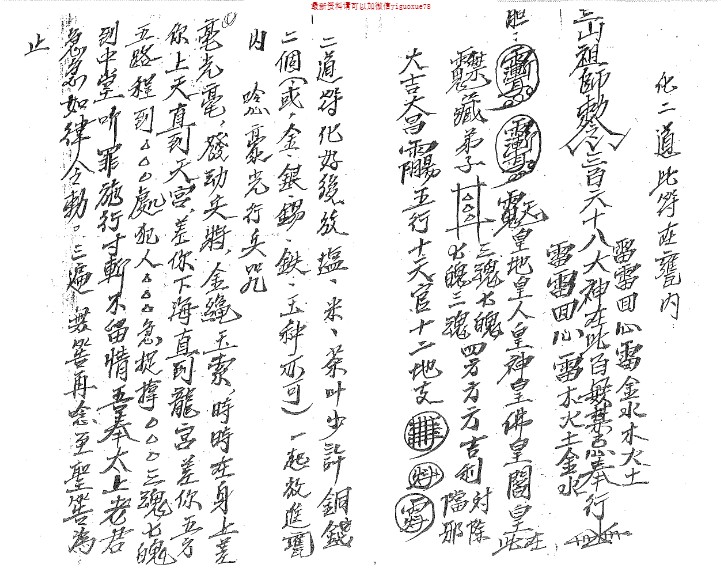 最新资料请可以加微信yiguoxue78
化二道此符在甕内
雷雷回心雷金水木火土
山祖師勅令三百六十八大神在此百無禁忌奉行
雷雷回心雷木火土金水
胆
天皇地皇人皇神皇佛皇閻皇在此
藏弟子
三魂七魄
七魄三魂
四方方方吉利
封除
當邪
大吉大昌
五行十天官十二地支
二道符化好後放塩、米、茶叶少許銅錢
二個(或、金、銀、錫、鉄、五种亦可)一起放進甕
内
唸毫光行兵咒
①毫光毫,發動兵將,金繩玉索,時時在身上差
你上天直到天宮,差你下海直到龍宮差你五方
五路程到○○○處犯人○○○急捉撑○○○三魂七魄
到中堂听罪施行寸斬不留情吾奉太上老君
急急如律令勅。三遍無筶再念至聖筶為
止